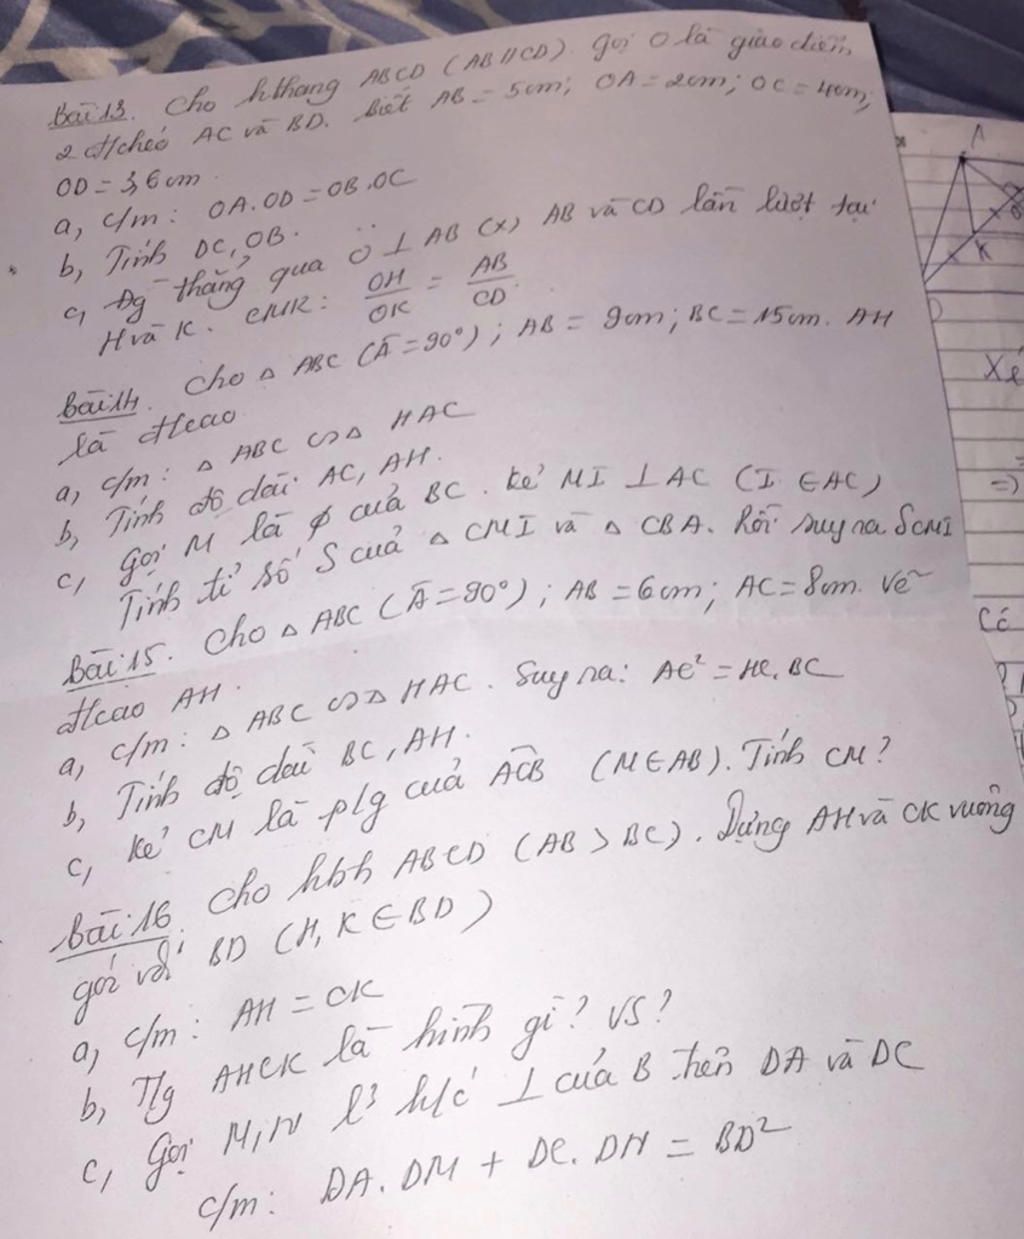 Bài 13. Cho hthang ABCD (AB//CD). gọi O là giao điểm
2 đ/chéo AC và BD. biết AB = 5cm; OA = 2cm; OC = 4cm;
OD = 3,6cm
a, c/m: OA.OD = OB.OC
b, Tính DC, OB.
c, Đg thẳng qua O ⊥ AB (x) AB và CD lần lượt tại
H và K. CMR: OH/OK = AB/CD
Bài 14. Cho △ ABC (Â = 90°); AB = 9cm; BC = 15cm. AH
là đ/cao
a, c/m: △ ABC ∽ △ HAC
b, Tính độ dài AC, AH.
c, gọi M là ϕ của BC. kẻ MI ⊥ AC (I ∈ AC)
Tính tỉ số S của △ CMI và △ CBA. Rồi suy ra SCMI
Bài 15. Cho △ ABC (Â = 90°); AB = 6cm; AC = 8cm. Vẽ
đ/cao AH.
a, c/m: △ ABC ∽ △ HAC. Suy ra: AC² = HC.BC
b, Tính độ dài BC, AH.
c, kẻ CM là p/g của ACB (M ∈ AB). Tính CM?
Bài 16 Cho hbh ABCD (AB > BC). Dựng AH và CK vuông
góc với BD (H, K ∈ BD)
a, c/m: AH = CK
b, T/g AHCK là hình gì? VS?
c, Gọi M, N l³ h/c ⊥ của B trên DA và DC
c/m: DA.DM + DC.DN = BD²
A
K
D
Xé
=>
Có